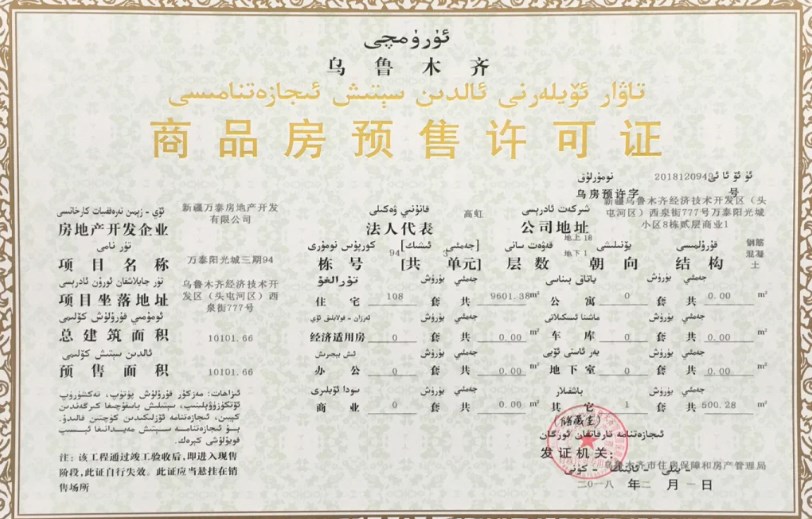 ئۈرۈمچى
乌鲁木齐
تاۋار ئۆيلەرنى ئالدىن سېتىش ئىجازەتنامىسى
商品房预售许可证
نومۇرلۇق 2018120943
乌房预许字 号
房地产开发企业 新疆万泰房地产开发有限公司
قانۇنىي ۋەكىلى
法人代表 高虹
شىركەت ئادرېسى
公司地址 新疆乌鲁木齐经济技术开发区（头屯河区）西泉街777号万泰阳光城小区8栋贰层商业1
تۈر نامى
项目名称 万泰阳光城三期94
栋号 94 [共 单元]
层数 地上18 地下1
朝向
结构 钢筋混凝土
项目坐落地址 乌鲁木齐经济技术开发区（头屯河区）西泉街777号
住宅 108 套 共 9601.38m²
公寓 0 套 共 0.00 m²
总建筑面积 10101.66
经济适用房 0 套 共 0.00 m²
车库 0 套 共 0.00 m²
预售面积 10101.66
办公 0 套 共 0.00 m²
地下室 0 套 共 0.00 m²
商业 0 套 共 0.00 m²
其它 1 套 共 500.28 m²
(储藏室)
注：该工程通过竣工验收后，即进入现售
阶段，此证自行失效。此证应当悬挂在销
售场所
发证机关：
乌鲁木齐市住房保障和房产管理局
二〇一八 年 二 月 一 日